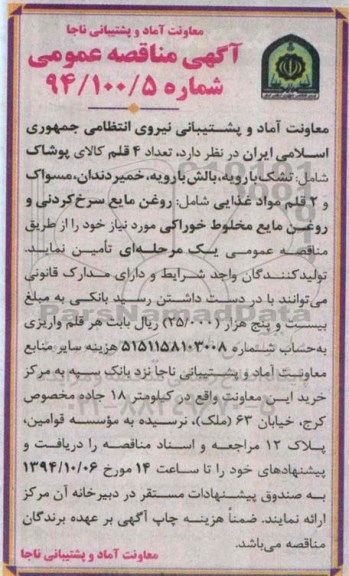 معاونت آماد و پشتیبانی ناجا
آگهی مناقصه عمومی
شماره ۹۴/۱۰۰/۵
معاونت آماد و پشتیبانی نیروی انتظامی جمهوری
اسلامی ایران در نظر دارد، تعداد ۴ قلم کالای پوشاک
شامل: تشک با رویه، بالش با رویه، خمیردندان، مسواک
و ۲ قلم مواد غذایی شامل: روغن مایع سرخ‌کردنی و
روغن مایع مخلوط خوراکی مورد نیاز خود را از طریق
مناقصه عمومی یک مرحله‌ای تأمین نماید.
تولیدکنندگان واجد شرایط و دارای مدارک قانونی
می‌توانند با در دست داشتن رسید بانکی به مبلغ
بیست و پنج هزار (۲۵/۰۰۰) ریال بابت هر قلم واریزی
به‌حساب شماره ۵۱۵۱۱۵۸۱۰۳۰۰۸ هزینه سایر منابع
معاونت آماد و پشتیبانی ناجا نزد بانک سپه به مرکز
خرید این معاونت واقع در کیلومتر ۱۸ جاده مخصوص
کرج، خیابان ۶۳ (ملک)، نرسیده به مؤسسه قوامین،
پلاک ۱۲ مراجعه و اسناد مناقصه را دریافت و
پیشنهادهای خود را تا ساعت ۱۴ مورخ ۱۳۹۴/۱۰/۰۶
به صندوق پیشنهادات مستقر در دبیرخانه آن مرکز
ارائه نمایند. ضمناً هزینه چاپ آگهی بر عهده برندگان
مناقصه می‌باشد.
معاونت آماد و پشتیبانی ناجا
ParsNamadData